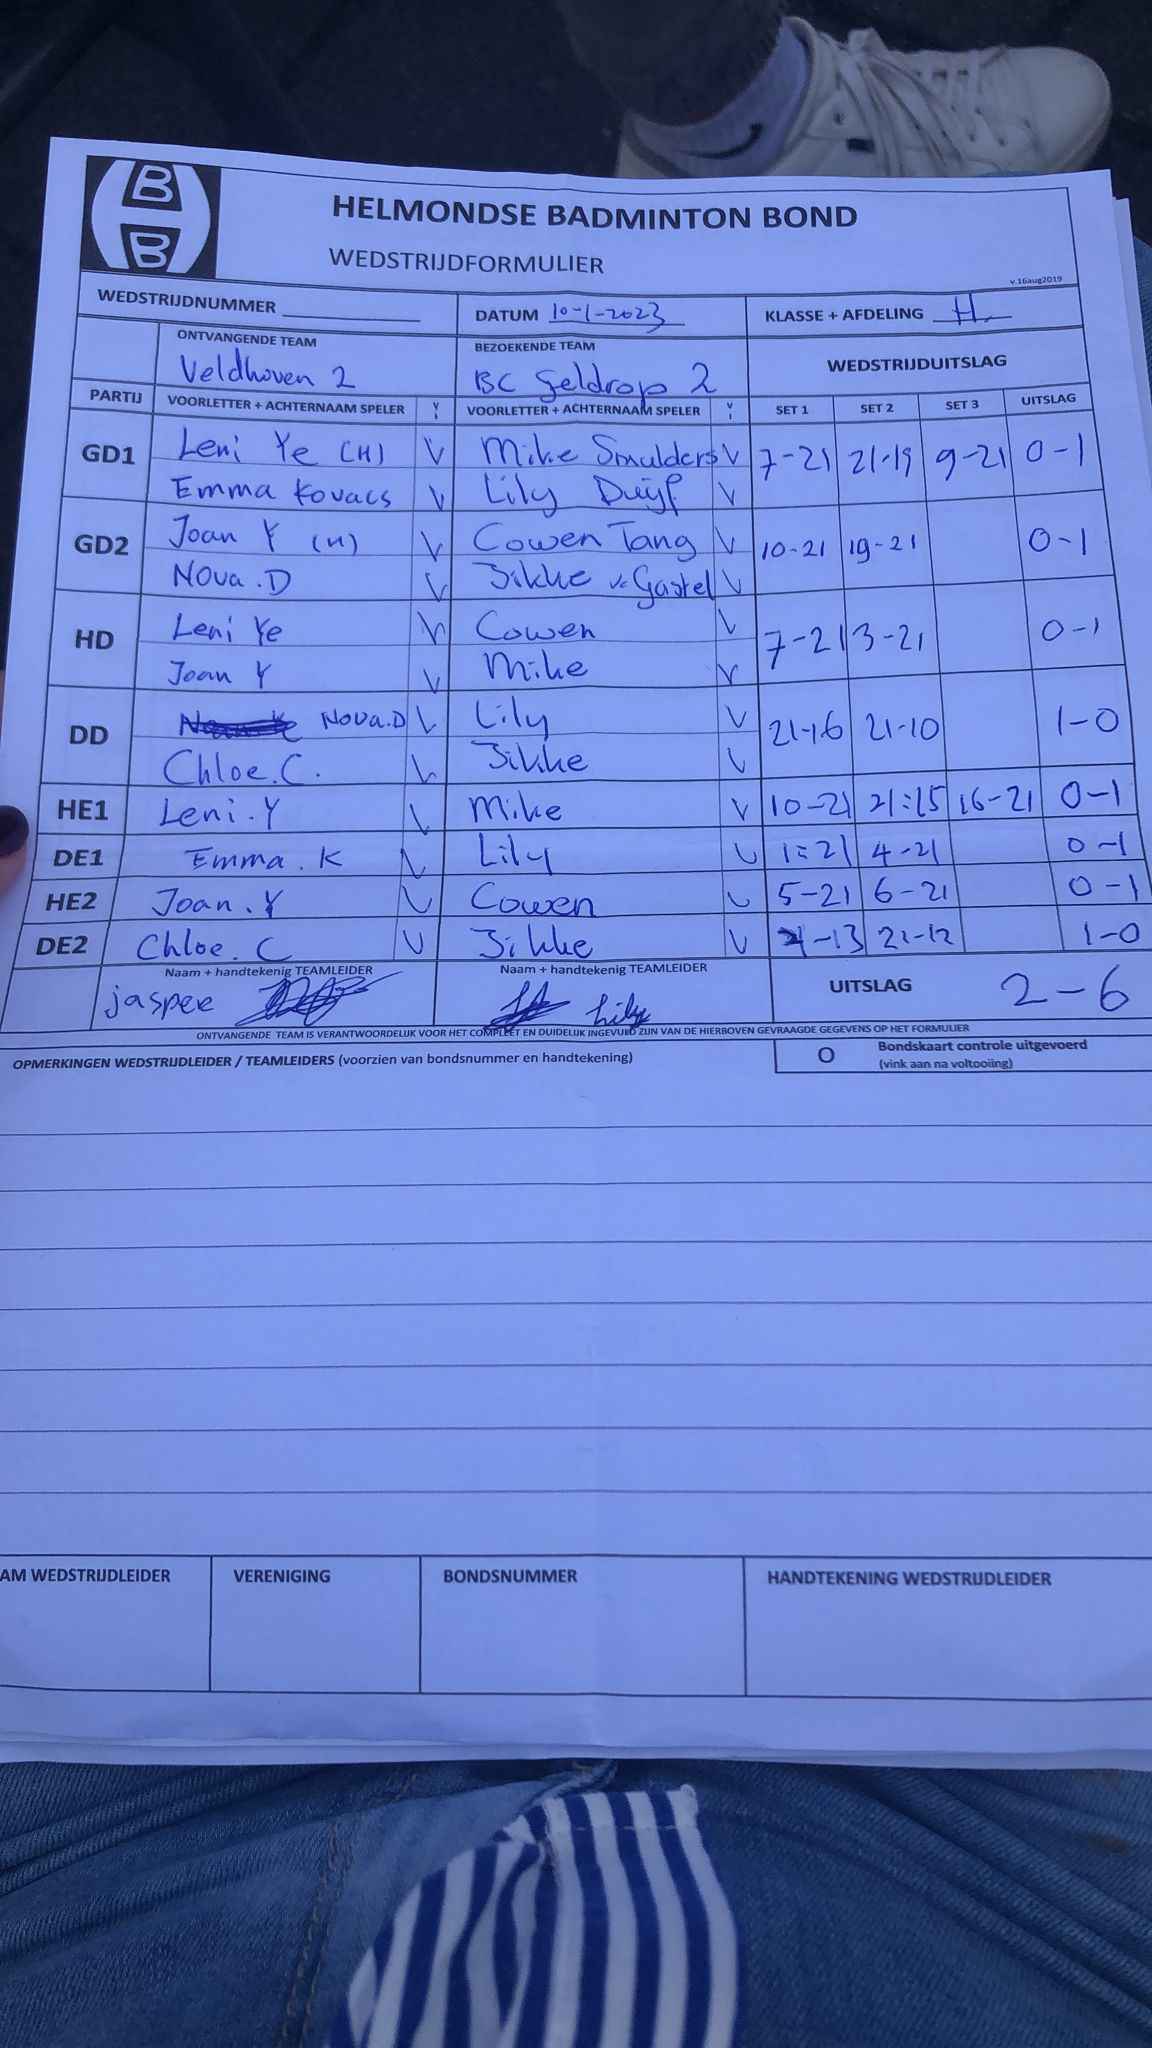 B
B
HELMONDSE BADMINTON BOND
WEDSTRIJDFORMULIER
v.16aug2019
WEDSTRIJDNUMMER DATUM 10-1-2023 KLASSE + AFDELING H
ONTVANGENDE TEAM BEZOEKENDE TEAM WEDSTRIJDUITSLAG
Veldhoven 2 BC Geldrop 2
PARTIJ VOORLETTER + ACHTERNAAM SPELER V VOORLETTER + ACHTERNAAM SPELER V SET 1 SET 2 SET 3 UITSLAG
GD1 Leni Ye (H) V Mike Smulders V 7-21 21-19 9-21 0-1
Emma Kovacs V Lily Duijf V
GD2 Joan Y (H) V Cowen Tang V 10-21 19-21 0-1
Nova.D V Jikke v Gastel V
HD Leni Ye V Cowen V 7-21 13-21 0-1
Joan Y V Mike V
DD Nova.D V Lily V 21-16 21-10 1-0
Chloe.C. V Jikke V
HE1 Leni.Y V Mike V 10-21 21-15 16-21 0-1
DE1 Emma.K V Lily V 1-21 4-21 0-1
HE2 Joan.Y V Cowen V 5-21 6-21 0-1
DE2 Chloe.C V Jikke V 21-13 21-12 1-0
Naam + handtekenig TEAMLEIDER Naam + handtekenig TEAMLEIDER UITSLAG 2-6
jasper Lily
ONTVANGENDE TEAM IS VERANTWOORDELIJK VOOR HET COMPLEET EN DUIDELIJK INGEVULD ZIJN VAN DE HIERBOVEN GEVRAAGDE GEGEVENS OP HET FORMULIER
OPMERKINGEN WEDSTRIJDLEIDER / TEAMLEIDERS (voorzien van bondsnummer en handtekening) O Bondskaart controle uitgevoerd
(vink aan na voltooiing)
AM WEDSTRIJDLEIDER VERENIGING BONDSNUMMER HANDTEKENING WEDSTRIJDLEIDER